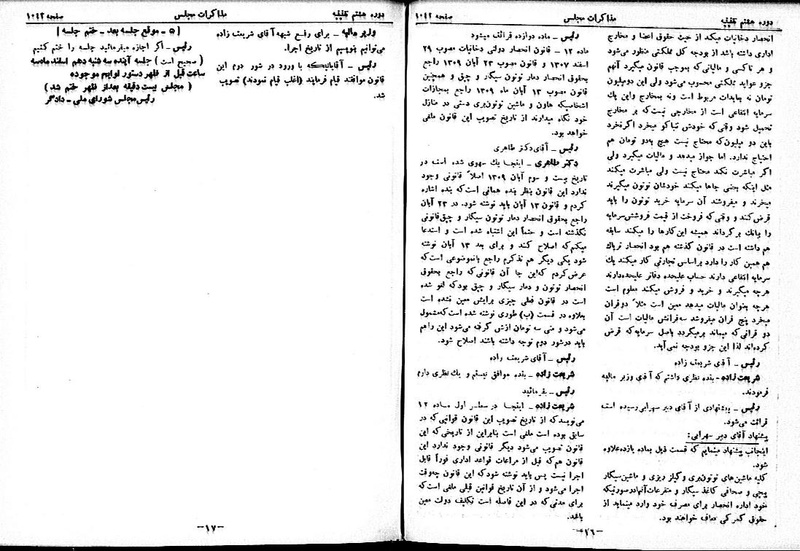 دوره هشتم تقنینیه
مذاکرات مجلس
صفحه ۱۰۴۲
انحصار دخانیات میکند از حیث حقوق اعضا و مخارج
اداری داشته باشد از بودجه کل مملکتی منظور می‌شود
و هر تاکسی و مالیاتی که بموجب قانون میگیرد آنهم
جزو عواید مملکتی محسوب می‌شود ولی این دو میلیون
تومان نه بعایدات مربوط است ونه بمخارج واین یك
سرمایه انتفاعی است از مخارجی نیست که بر مخارج
تحمیل شود وقتی که خودش تنباکو میخرد اگر نخرد
باین دو میلیون که محتاج نیست هیچ بده تومان هم
احتیاج ندارد. اما جواز میدهد و مالیات میگیرد ولی
اگر مباشرت نکند محتاج نیست ولی مباشرت میکند
مثل اینکه بعضی جاها میکند خودشان توتون میگیرند
میخرند و میفروشند آن سرمایه خرید توتون را باید
قرض کنند و وقتی که فروخت از قیمت فروش سرمایه
را ببانك برگرداند همیشه این کارها را میکند سابقه
هم داشته است در قانون گذشته هم بود انحصار تریاك
هم همین کار را دارد براساس تجارتی کار میکند یك
سرمایه انتفاعی دارند حساب علیحده دفاتر علیحده دارند
هرچه میگیرند و خرید و فروش میکند معلوم است
هرچه بعنوان مالیات میدهد معین است مثلاً دو قران
میخرد پنج قران میفروشد سه قرانش مالیات است آن
دو قرانی که میماند برمیگردد باصل سرمایه که قرض
کرده‌اند لذا این جزو بودجه نمی‌آید.
رئیس ـ آقای شریعت زاده
شریعت زاده ـ بنده نظری داشتم که آقای وزیر مالیه
فرمودند.
رئیس ـ پیشنهادی از آقای دبیر سهرابی رسیده است
قرائت می‌شود.
پیشنهاد آقای دبیر سهرابی:
اینجانب پیشنهاد مینمایم که قسمت ذیل بماده یازده علاوه
شود.
کلیه ماشین‌های توتون‌بری و گیلز ریزی و ماشین سیگار
پیچی و صحافی کاغذ سیگار و متفرعات آنها درصورتیکه
خود اداره انحصار برای مصرف خود وارد مینماید از
حقوق گمرکی معاف خواهند بود.
رئیس ـ ماده دوازده قرائت میشود
ماده ۱۲ ـ قانون انحصار دولتی دخانیات مصوب ۲۹
اسفند ۱۳۰۷ و قانون مصوب ۲۳ آبان ۱۳۰۹ راجع
بحقوق انحصار دمار توتون سیگار و چپق و همچنین
قانون مصوب ۱۳ آبان ماه ۱۳۰۹ راجع بمجازات
اشخاصیکه هاون و ماشین توتون‌بری دستی در منازل
خود نگاه میدارند از تاریخ تصویب این قانون ملغی
خواهد بود.
رئیس ـ آقای دکتر طاهری
دکتر طاهری ـ اینجا یك سهوی شده است در
تاریخ بیست و سوم آبان ۱۳۰۹ اصلاً قانونی وجود
ندارد این قانون بنظر بنده همانی است که بنده اشاره
کردم و قانون ۱۳ آبان باید نوشته شود. در ۲۳ آبان
راجع بحقوق انحصار دمار توتون سیگار و چپق قانونی
نگذشته است و حتماً این اشتباه شده است و استدعا
میکنم که اصلاح کنند و برای بعد ۱۳ آبان نوشته
شود یکی دیگر هم تذکرم راجع بانموضوعی است که
عرض کردم که این جا آن قانونی که راجع بحقوق
انحصار توتون و دمار سیگار و چپق بود که لغو شده
است در قانون فعلی چیزی برایش معین نشده است
بعلاوه در قسمت (ب) طوری نوشته شده است که مشمول
می‌شود و منی سه تومان ازش گرفته می‌شود این را هم
باید در شور دوم توجه داشته باشند اصلاح شود.
رئیس ـ آقای شریعت زاده
شریعت زاده ـ بنده موافق نیستم و یك نظری دارم
رئیس ـ بفرمائید
شریعت زاده ـ اینجا در سطر اول ماده ۱۲
می‌نویسد که از تاریخ تصویب این قانون قوانینی که در
سابق بوده است ملغی است بنابراین از تاریخی که این
قانون تصویب می‌شود دیگر قانونی وجود ندارد این
قانون هم که قبل از مراعات قواعد اداری فوراً قابل
اجرا نیست پس باید نوشته شود که این قانون چه‌وقت
اجرا می‌شود و از آن تاریخ قوانین قبلی ملغی است که
برای مدتی که در این فاصله است تکلیف دولت معین
باشد.
ـ۱۶ـ
دوره هشتم تقنینیه
مذاکرات مجلس
صفحه ۱۰۴۲
وزیر مالیه ـ برای رفع شبهه آقای شریعت زاده
می‌توانیم بنویسیم از تاریخ اجرا.
رئیس ـ آقایانیکه با ورود در شور دوم این
قانون موافقند قیام فرمایند (اغلب قیام نمودند) تصویب
شد.
[ ۵ ـ موقع جلسه بعد ـ ختم جلسه ]
رئیس ـ اگر اجازه میفرمائید جلسه را ختم کنیم
( صحیح است ) جلسه آینده سه شنبه دهم اسفندماه سه
ساعت قبل از ظهر دستور لوایح موجوده
( مجلس بیست دقیقه بعد از ظهر ختم شد )
رئیس مجلس شورای ملی ـ دادگر
ـ۱۷ـ